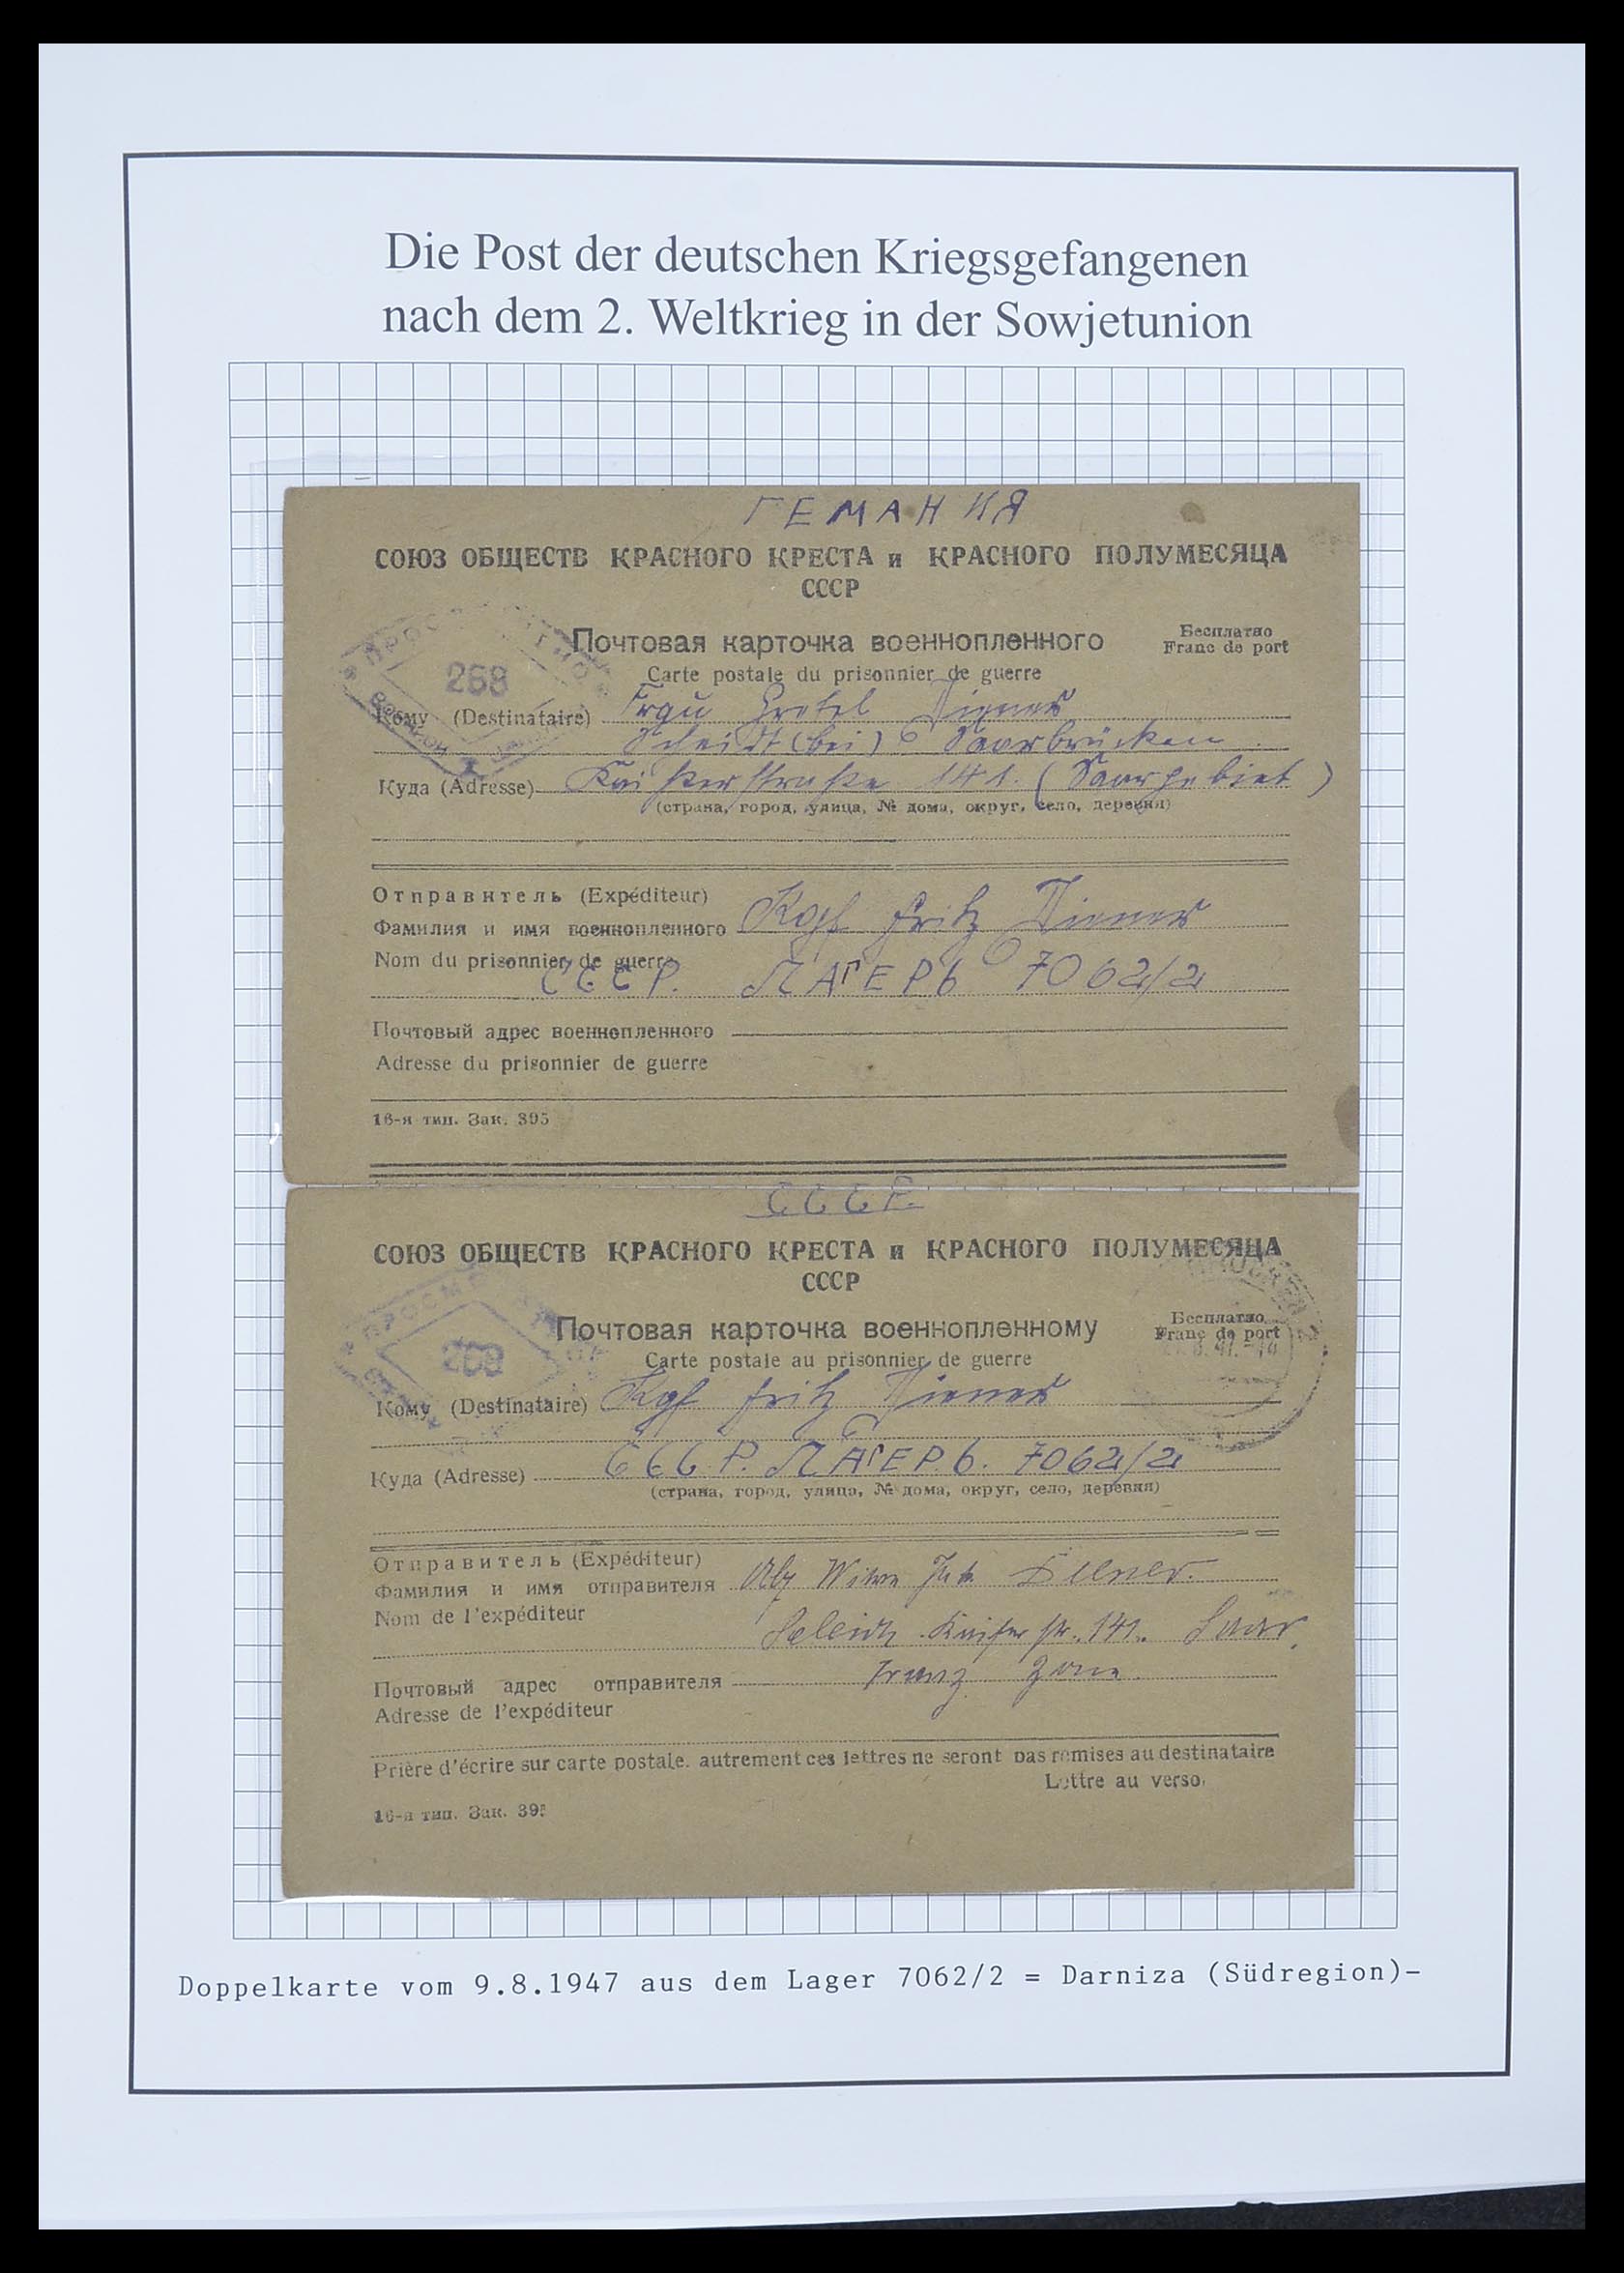 Die Post der deutschen Kriegsgefangenen
nach dem 2. Weltkrieg in der Sowjetunion
ГЕМАНИЯ
СОЮЗ ОБЩЕСТВ КРАСНОГО КРЕСТА и КРАСНОГО ПОЛУМЕСЯЦА
СССР
Почтовая карточка военнопленного
Бесплатно
Franc de port
Carte postale du prisonnier de guerre
268
Кому (Destinataire) Frau Gretel Diener
Scheidt (bei) Saarbrücken
Куда (Adresse) Kaiserstraße 141. (Saargebiet)
(страна, город, улица, № дома, округ, село, деревня)
Отправитель (Expéditeur)
Фамилия и имя военнопленного Kgf Fritz Diener
Nom du prisonnier de guerre
СССР. ЛАГЕРЬ 7062/2
Почтовый адрес военнопленного
Adresse du prisonnier de guerre
16-я тип. Зак. 395
СССР.
СОЮЗ ОБЩЕСТВ КРАСНОГО КРЕСТА и КРАСНОГО ПОЛУМЕСЯЦА
СССР
Почтовая карточка военнопленному
Бесплатно
Franc de port
Carte postale au prisonnier de guerre
268
Кому (Destinataire) Kgf Fritz Diener
Куда (Adresse) СССР. ЛАГЕРЬ. 7062/2
(страна, город, улица, № дома, округ, село, деревня)
Отправитель (Expéditeur)
Фамилия и имя отправителя
Nom de l'expéditeur
Kaiserstr. 141. Saar,
Почтовый адрес отправителя Franz Zone
Adresse de l'expéditeur
Prière d'écrire sur carte postale. autrement ces lettres ne seront pas remises au destinataire
Lettre au verso.
16-я тип. Зак. 395
Doppelkarte vom 9.8.1947 aus dem Lager 7062/2 = Darniza (Südregion)-